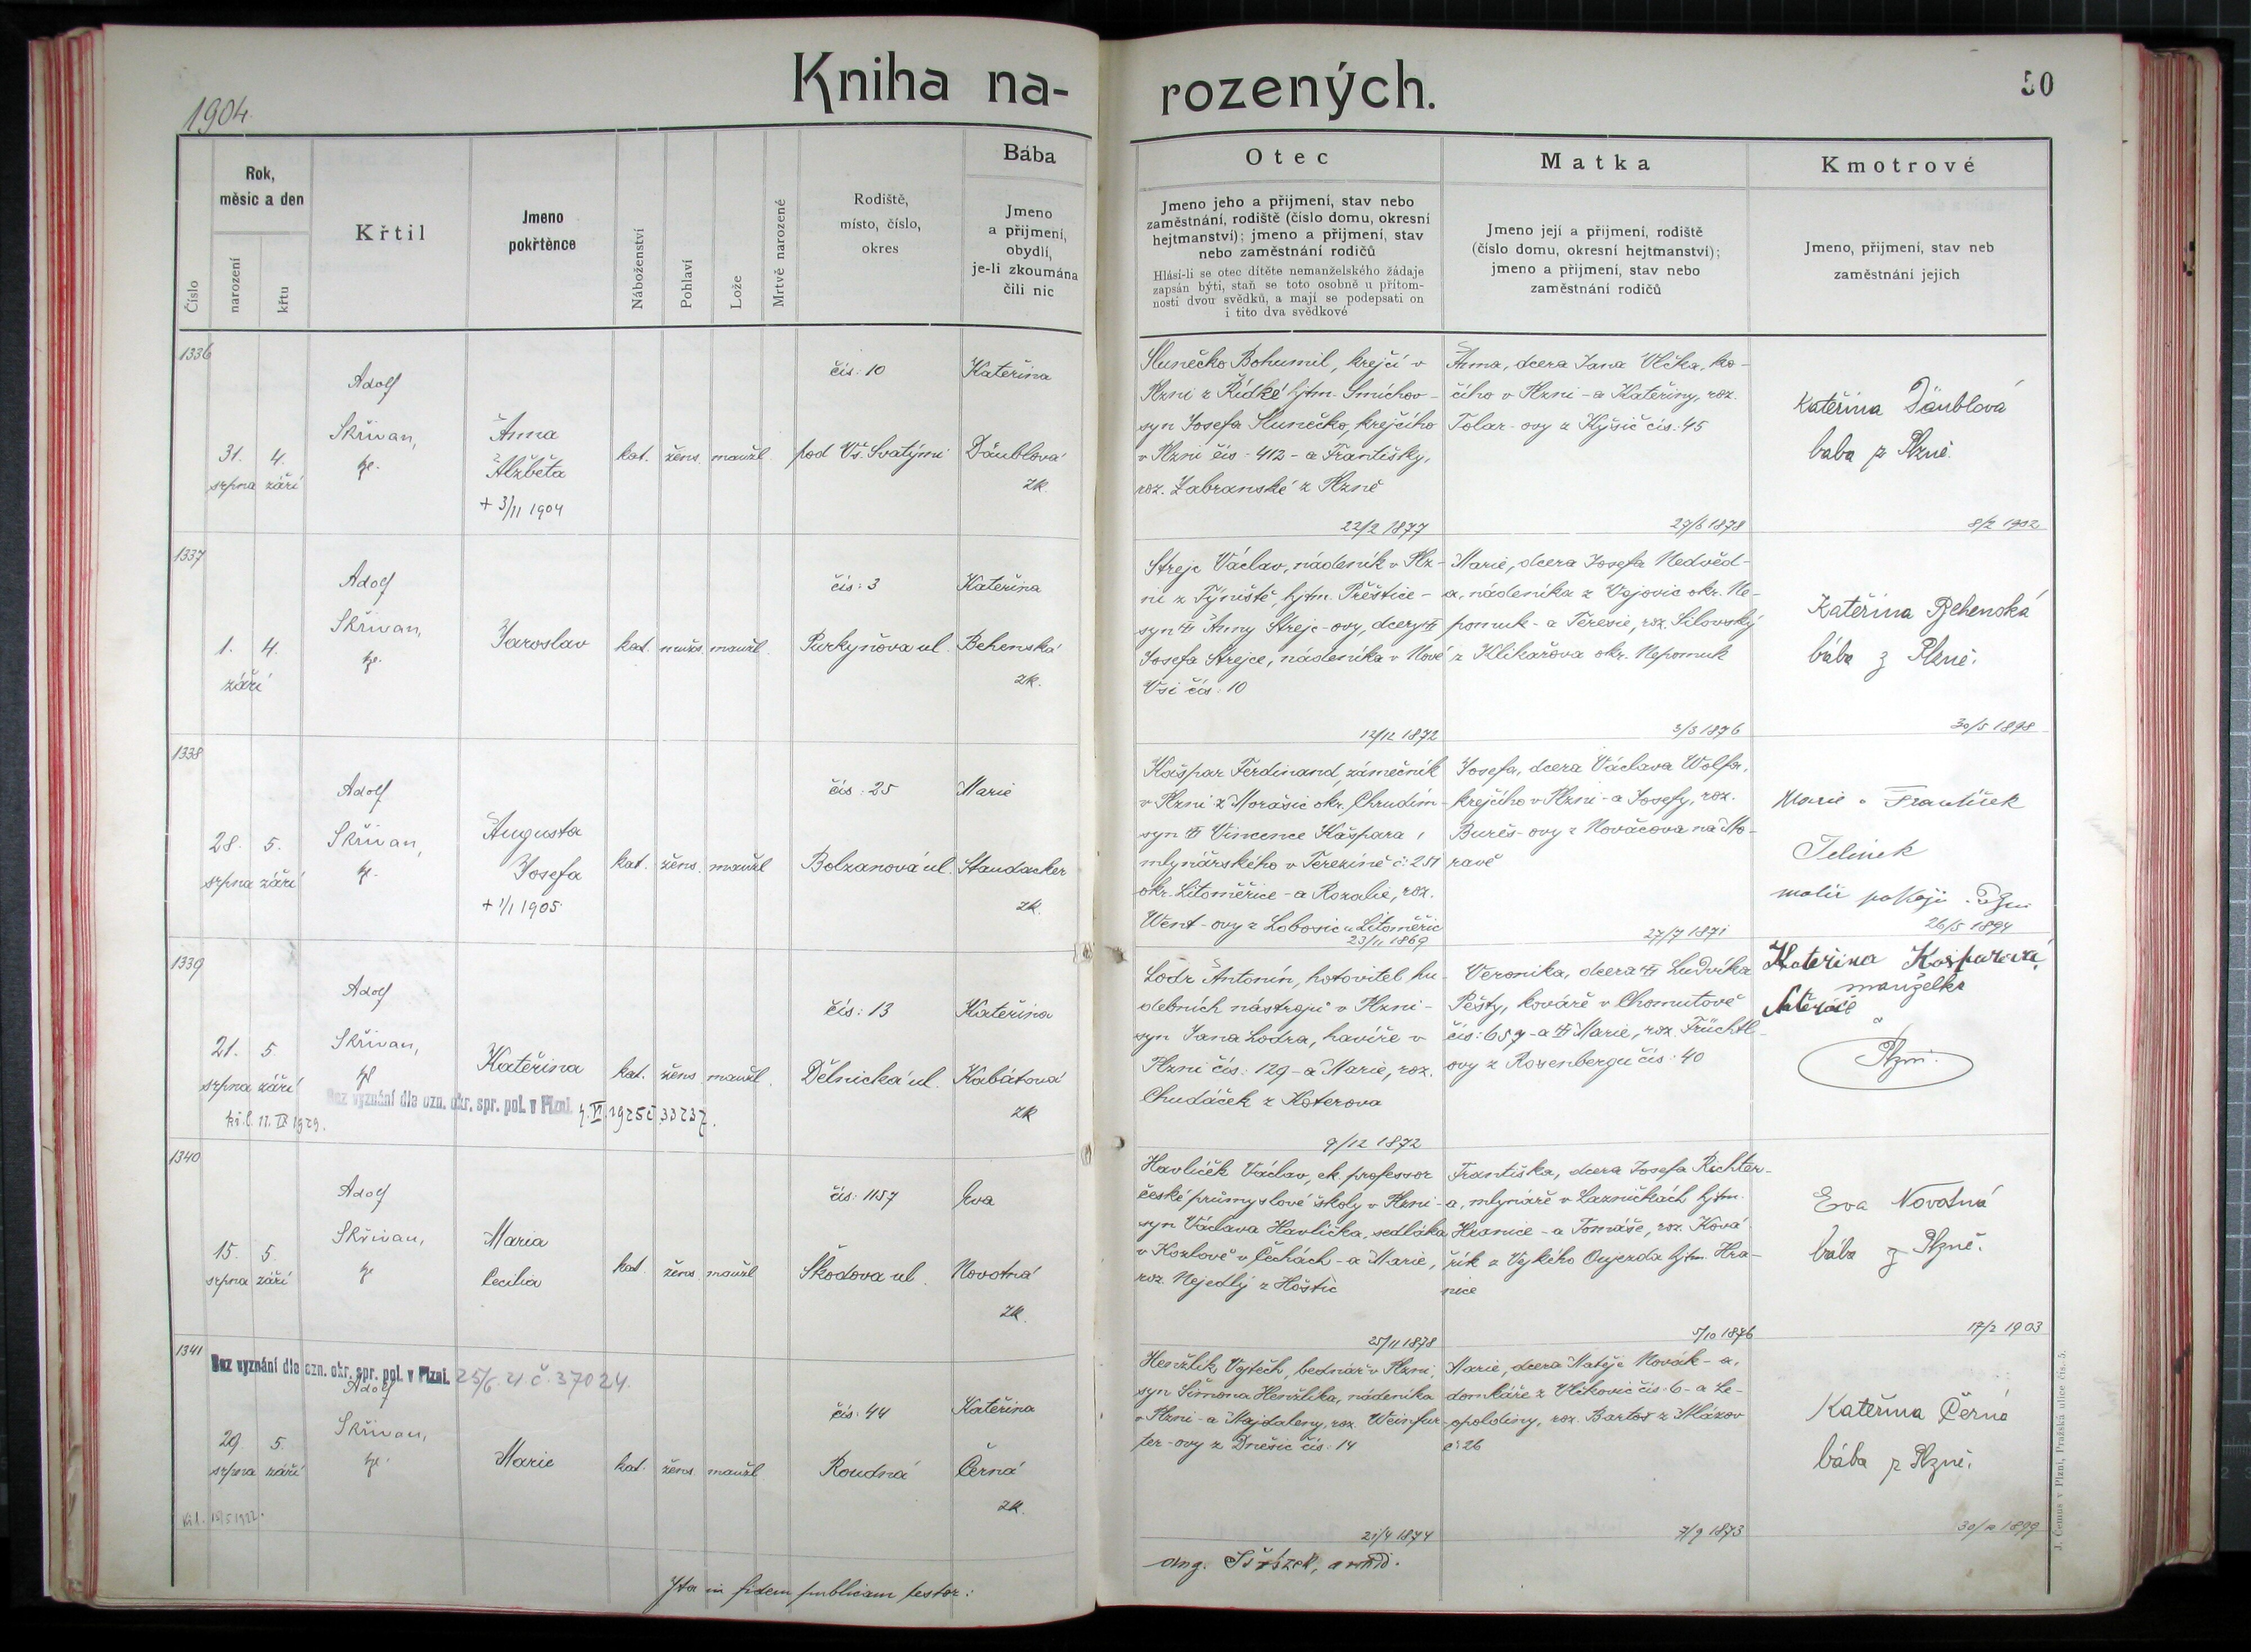 Kniha na-
1904
Číslo
Rok,
měsíc a den
narození
křtu
Křtil
Jmeno
pokřtěnce
Náboženství
Pohlaví
Lože
Mrtvě narozené
Rodiště,
místo, číslo,
okres
Bába
Jmeno
a příjmení,
obydlí,
je-li zkoumána
čili nic
1336
31. srpna
4. září
Adolf
Skřivan,
Anna
Alžběta
+ 3/11 1904
kat.
žens.
manžl.
čís: 10
pod Vš. Svatými
Kateřina
Däublová
zk.
1337
1.
4.
září
Adolf
Skřivan,
Jaroslav
kat.
mužs.
manžl.
čís: 3
Purkyňova ul.
Kateřina
Behenská
zk.
1338
28. srpna
5. září
Adolf
Skřivan,
Augusta
Josefa
+ 1/1 1905
kat.
žens.
manžl
čís: 25
Bolzanová ul.
Marie
Staudacker
zk.
1339
21. srpna
5. září
Adolf
Skřivan,
Kateřina
kat.
žens
manžl.
čís: 13
Dělnická ul.
Kateřina
Kabátová
zk
Bez vyznání dle ozn. okr. spr. pol. v Plzni.
1340
15. srpna
5. září
Adolf
Skřivan,
Maria
Cecilia
kat.
žens.
manžl
čís: 1157
Škodova ul.
Eva
Novotná
zk.
1341
Bez vyznání dle ozn. okr. spr. pol. v Plzni. 25/6. 21 č. 37024.
29. srpna
5. září
Adolf
Skřivan,
Marie
kat.
žens.
manžl
čís: 44
Roudná
Kateřina
Černá
zk.
Ita in fidem publicam testor:
rozených.
50
Otec
Jmeno jeho a přijmení, stav nebo
zaměstnání, rodiště (číslo domu, okresní
hejtmanství); jmeno a přijmení, stav
nebo zaměstnání rodičů
Hlásí-li se otec dítěte nemanželského žádaje
zapsán býti, staň se toto osobně u přítom-
nosti dvou svědků, a mají se podepsati on
i tito dva svědkové
Matka
Jmeno její a přijmení, rodiště
(číslo domu, okresní hejtmanství);
jmeno a přijmení, stav nebo
zaměstnání rodičů
Kmotrové
Jmeno, přijmení, stav neb
zaměstnání jejich
Slunečko Bohumil, krejčí v
Plzni z Řídké hjtm. Smíchov -
syn Josefa Slunečko, krejčího
v Plzni čís - 412 - a Františky,
roz. Zabranské z Plzně
22/2 1877
Anna, dcera Jana Vlčka, ko-
čího v Plzni - a Kateřiny, roz.
Tolar - ovy z Kyšic čís: 45
29/6 1878
Kateřina Däublová
baba z Plzně.
8/2 1902
Strejc Václav, nádeník v Plz-
ni z Týniště, hjtm. Přeštice -
syn Anny Strejc-ovy, dcery
Josefa Strejce, nádeníka v Nové
Vsi čís: 10
12/12 1872
Marie, dcera Josefa Nedvěd-
a, nádeníka z Vojovic okr. Ne-
pomuk - a Teresie, roz. Silovský
z Klikařova okr. Nepomuk
3/3 1876
Kateřina Behenská
bába z Plzně.
30/5 1898
Kašpar Ferdinand, zámečník
v Plzni z Morašic okr. Chrudim -
syn Vincence Kašpara,
mlynářského v Terezíně č: 251
okr. Litoměřice - a Rozalie, roz.
Went - ovy z Lobosic u Litoměřic
23/11 1869
Josefa, dcera Václava Wolfa,
krejčího v Plzni - a Josefy, roz.
Bureš - ovy z Nováčova na Mo-
ravě
27/7 1871
Marie a František
Jelinek
malíř pokojů
26/5 1894
Lodr Antonín, hotovitel hu-
debních nástrojů v Plzni -
syn Jana Lodra, havíře v
Plzni čís: 129 - a Marie, roz.
Chudáček z Koterova
9/12 1872
Veronika, dcera Ludvíka
Pešty, kováře v Chomutově
čís: 659 - a Marie, roz. Früchtl-
ovy z Rosenbergu čís: 40
Kateřina Kašparová
manželka
Plzni.
Havlíček Václav, ck. professor
české průmyslové školy v Plzni -
syn Václava Havlíčka, sedláka
v Kozlově v Čechách - a Marie,
roz. Nejedlý z Hoštic
25/11 1878
Františka, dcera Josefa Richter-
a, mlynáře v Lazničkách hjtm.
Hranice - a Tomáše, roz. Ková
řík z Vejkého Oujezda hjtm. Hra-
nice
5/10 1876
Eva Novotná
bába z Plzně.
17/2 1903
Henžlík Vojtěch, bednář v Plzni,
syn Šimona Henžlíka, nádeníka
v Plzni - a Majdaleny, roz. Weinfur-
ter - ovy z Dnešic čís: 14
21/4 1874
Marie, dcera Matěje Novák - a,
domkáře z Vlčkovic čís: 6 - a Le-
opoldiny, roz. Bartoš z Mlázov
č: 26
7/9 1873
Kateřina Černá
bába z Plzně.
30/12 1899
J. Černus v Plzni, Pražská ulice čís. 5.